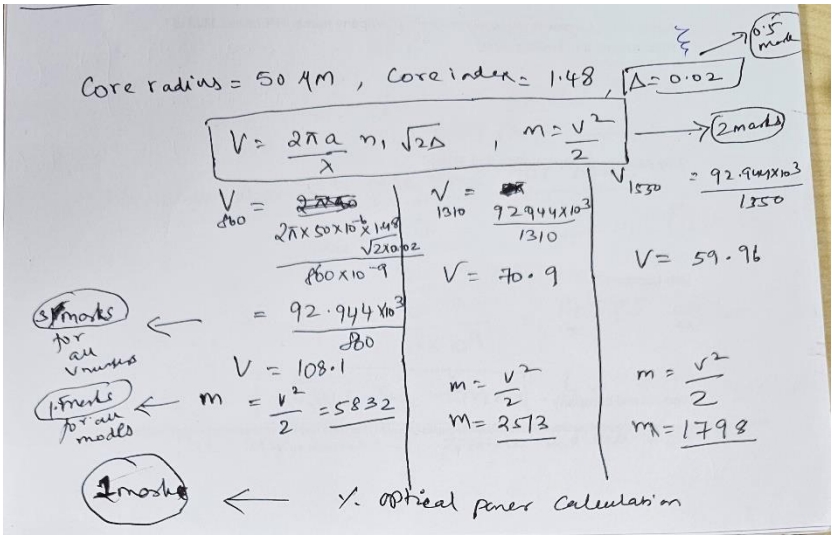 0.5 mark
Core radius = 50 μm , Core index = 1.48 , Δ = 0.02
V = 2πa/λ n₁ √2Δ , m = v²/2
2 marks
V860 = 2π × 50 × 10⁻⁶ × 1.48 √2×0.02 / 860 × 10⁻⁹
= 92.944 × 10³ / 860
V = 108.1
m = v²/2 = 5832
V1310 = 92944 × 10³ / 1310
V = 70.9
m = v²/2
m = 2513
V1550 = 92.944 × 10³ / 1550
V = 59.96
m = v²/2
m = 1798
3 marks
for
all
V numbers
1. marks
for all
modes
1 mark
% optical power calculation